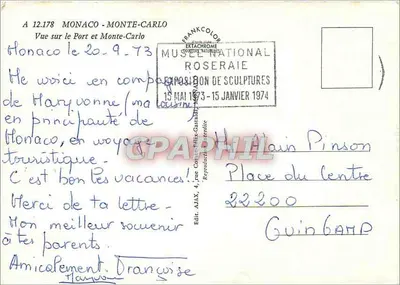 A 12.178 MONACO - MONTE-CARLO
Vue sur le Port et Monte-Carlo
FRANKCOLOR
EKTACHROME
MUSEE NATIONAL
ROSERAIE
EXPOSITION DE SCULPTURES
15 MAI 1973 - 15 JANVIER 1974
Monaco le 20-9.73
Me voici en compagnie
de Maryvonne (ma cousine)
en principauté de
Monaco, en voyage
touristique.
C'est bon les vacances!!
Merci de ta lettre.
Mon meilleur souvenir
à tes parents.
Amicalement. Françoise
Maryvonne
Edit. AJAX, 4, rue
Reproduction interdite
M. Alain Pinson
Place du Centre
22200
GUINGAMP
CPAPHIL